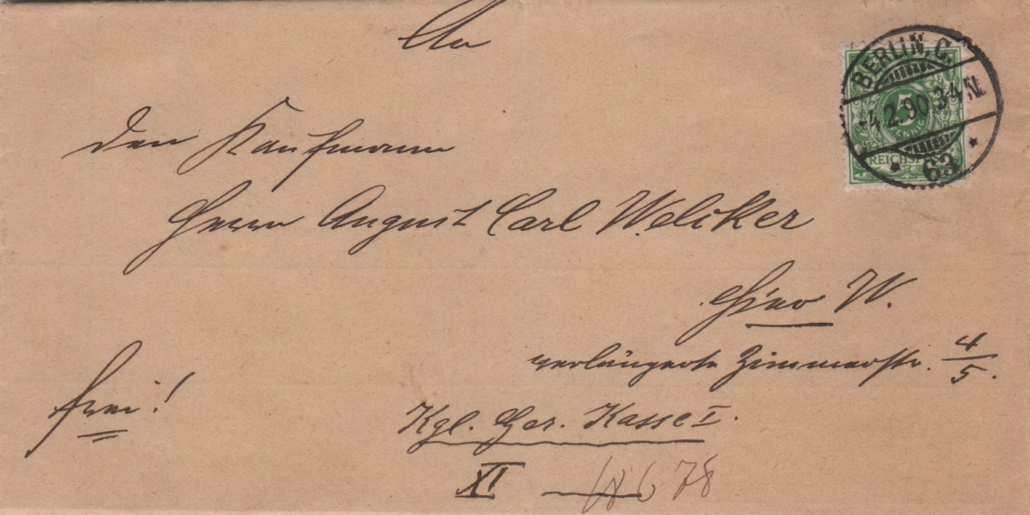 An
BERLIN, C.
-4.2.90.3-4N.
63
5
PFENNIG
REICHSPOST
den Kaufmann
Herrn August Carl Welcker
Hier W.
verlängerte Zimmerstr. 4/5.
frei!
Kgl. Ger. Kasse I.
XI